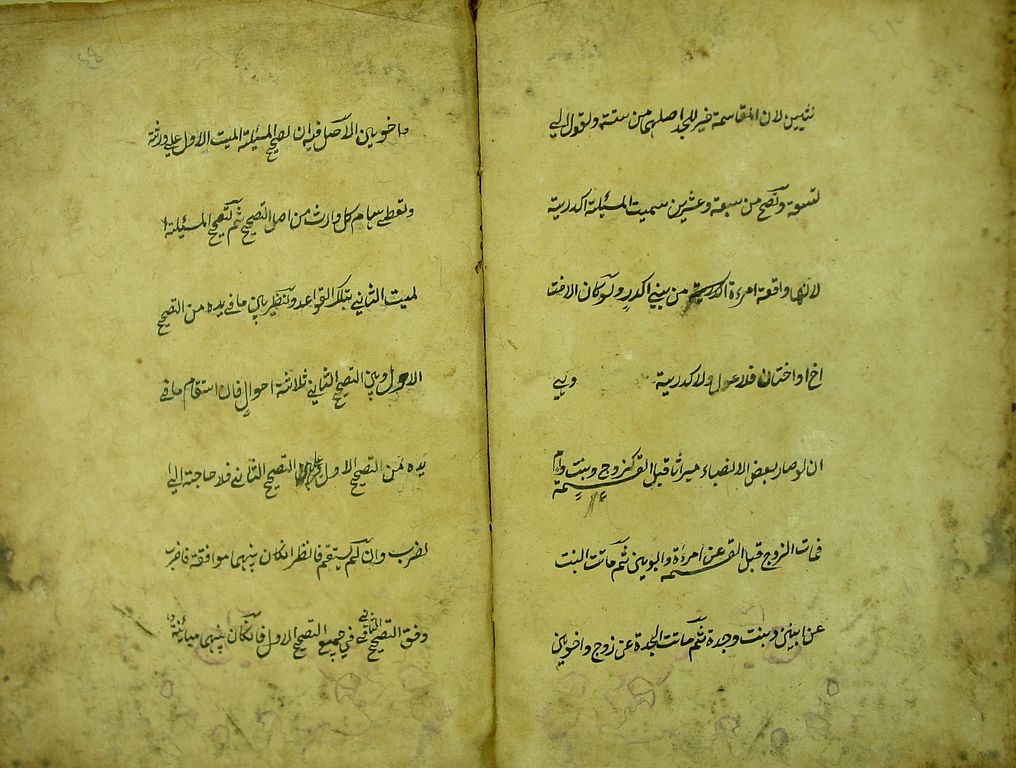 نثيين لان المقاسمة خير للجد اصلهما من ستة وتعول الى
تسعة وتصح من سبعة وعشرين سميت المسئلة اكدرية
لانها واقعة امرءة من بني اكدر ولو كان الاخت
اخ او اختان فلا عول ولا كدرية
ان لو صار بعض الانصباء ميراثا قبل القسمة كزوج وبنت وام
فمات الزوج قبل القسمة عن امرءة وابوين ثم ماتت البنت
عن ابنين وبنت وجدة ثم ماتت الجدة عن زوج واخوين
والاصل فيه ان تصحح المسئلة الميت الاول على ورثة
وتعطى سهام كل وارث من اصل التصحيح ثم تصحح المسئلة
لميت الثاني بتلك القواعد وتنظر بين ما في يده من التصحيح
الاول وبين التصحيح الثاني ثلاثة احوال فان استقام ما في
يده من التصحيح الاول على التصحيح الثاني فلا حاجة الى
لضرب وان لم يستقم فانظر انكان بينهما موافقة فاضرب
وفق التصحيح الثاني في جميع التصحيح الاول فانكان بينهما مباينة